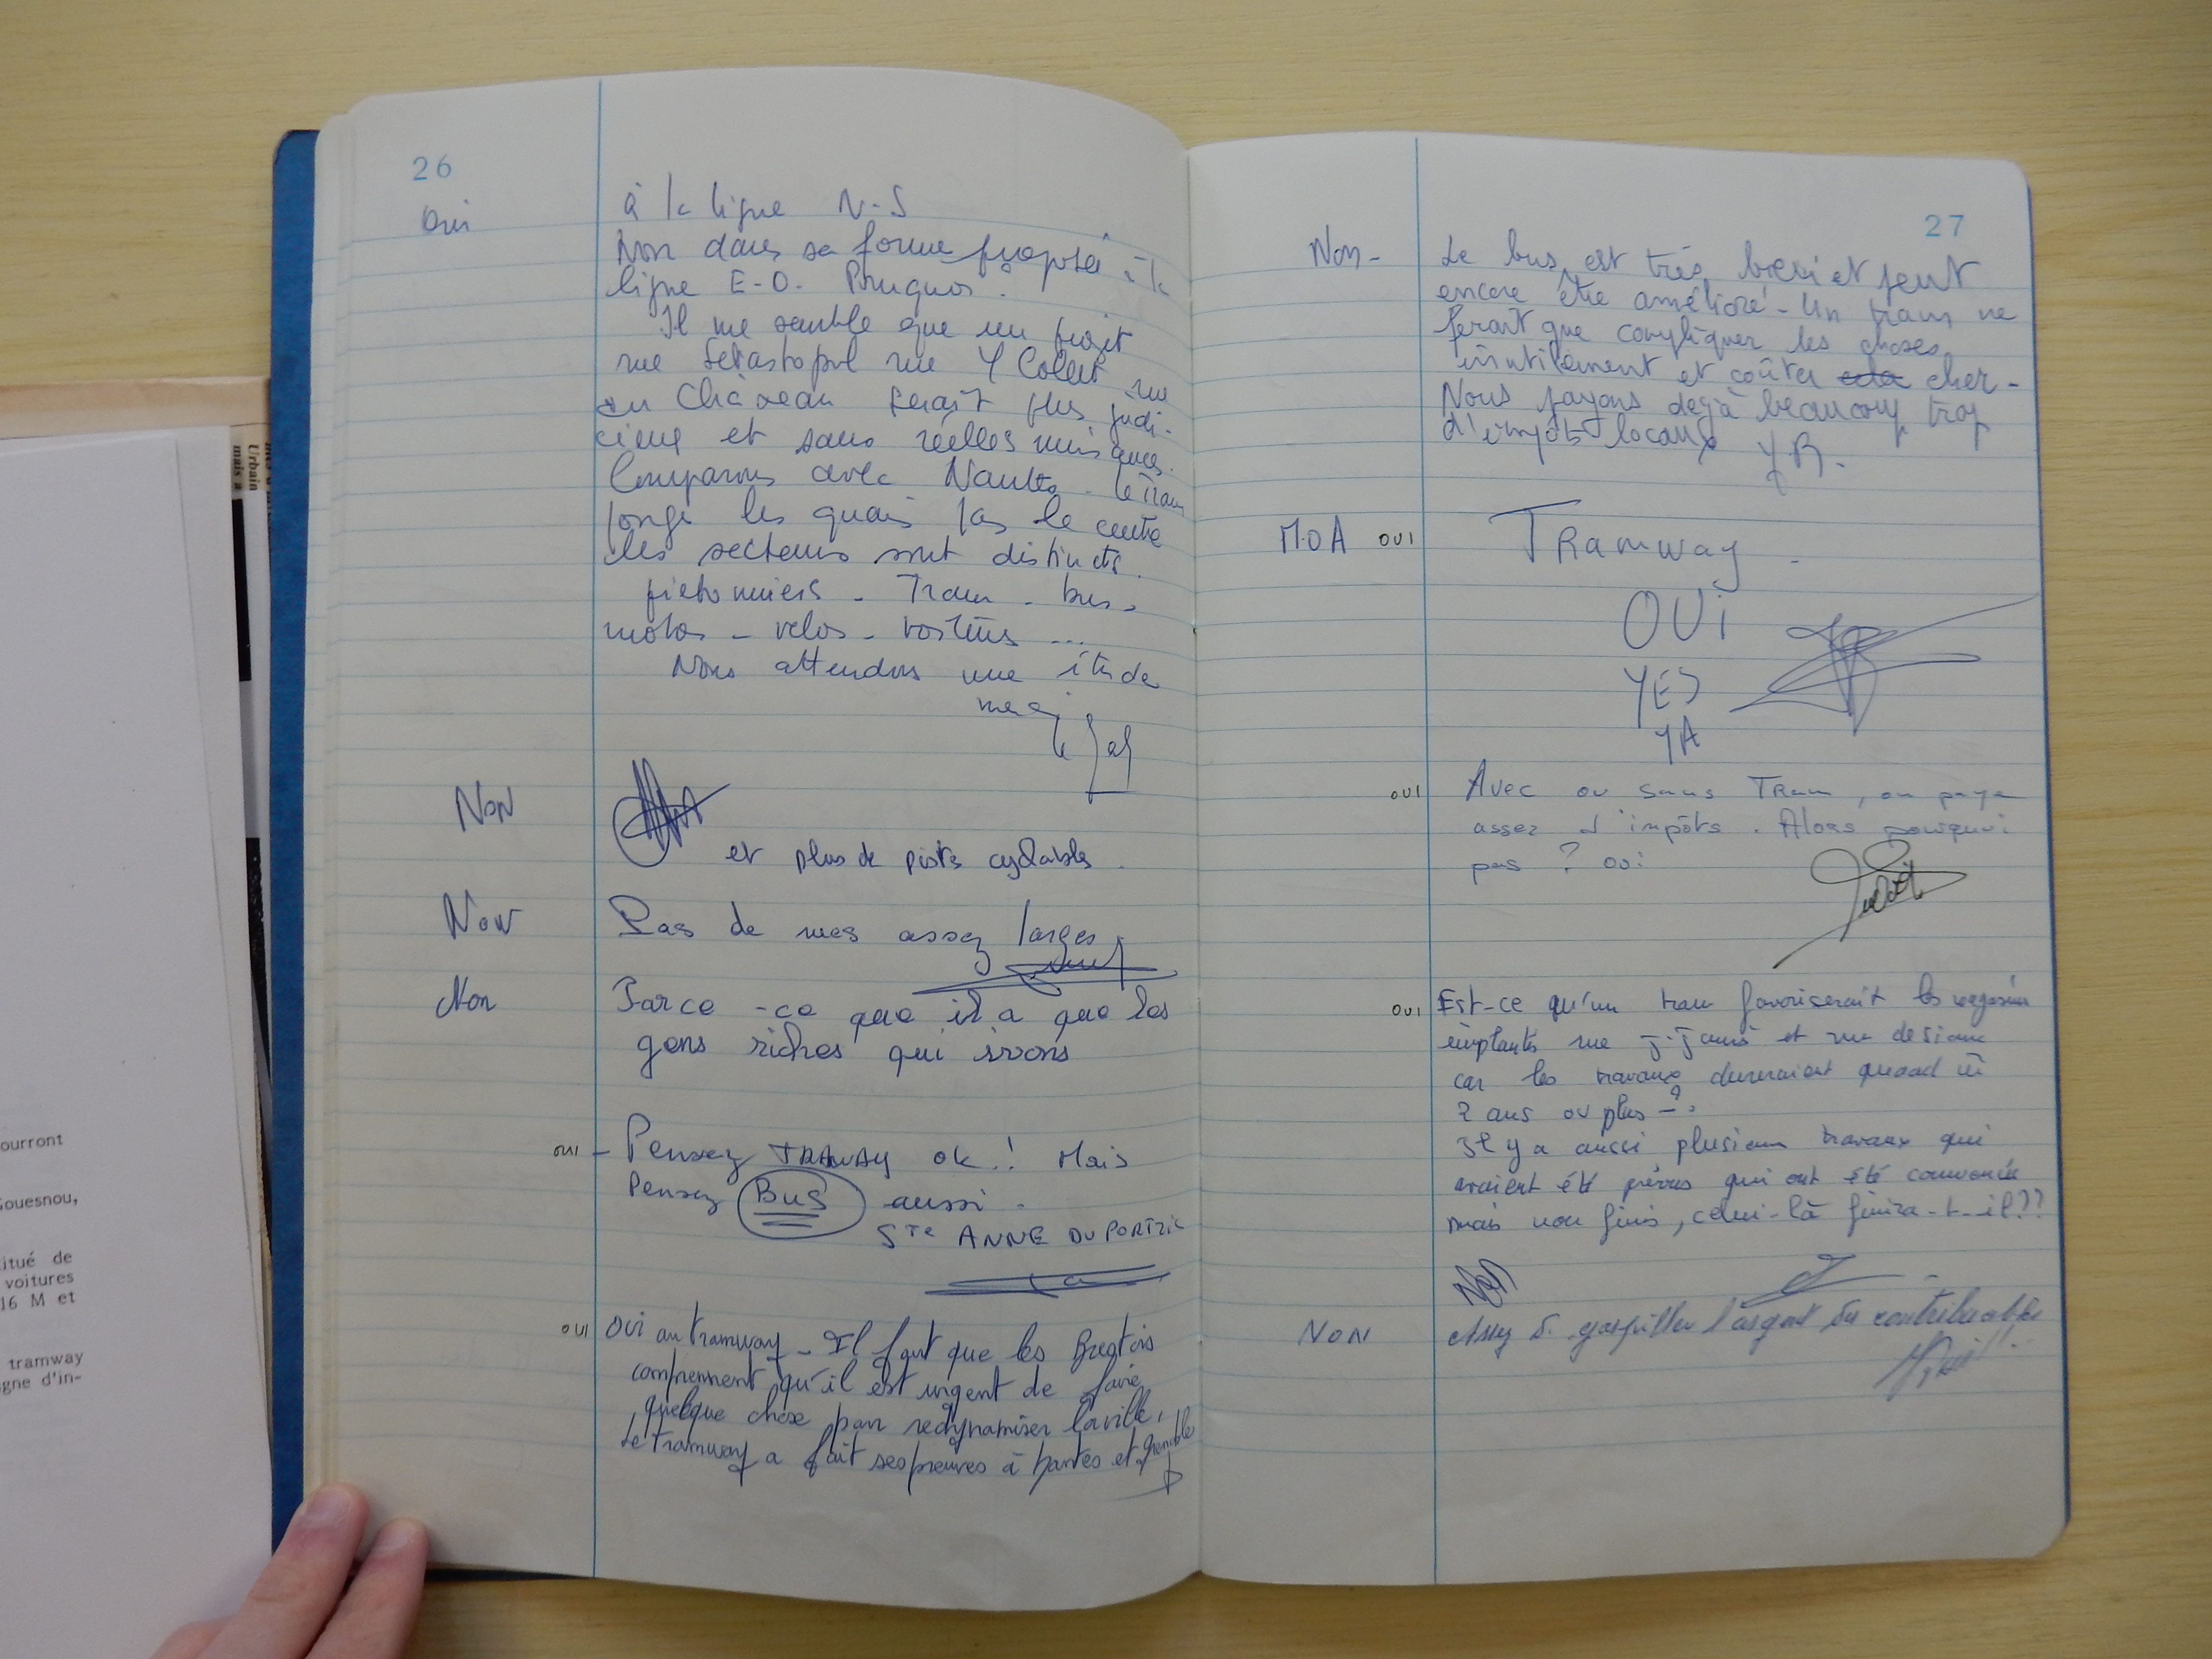 26
Oui
à la ligne N-S
Non dans sa forme proposée à la
ligne E-O. Pourquoi.
Il me semble que un trajet
rue Sébastopol rue Y Collet rue
du Château serait plus judi-
cieux et sans réelles nuisances.
Comparons avec Nantes. le Tram
longe les quais pas le centre
les secteurs sont distincts.
pietonniers - Tram - bus -
motos - velos - voitures ...
Nous attendons une étude
merci
Le
NON
et plus de pistes cyclables.
Non
Pas de rues assez larges.
Non
Parce -ce que il a que les
gens riches qui irons
OUI
- Pensez TRAWAY ok! Mais
Pensez BUS aussi.
Ste ANNE DU PORTZIC
OUI
OUI au tramway - Il faut que les Brestois
comprennent qu'il est urgent de faire
quelque chose pour redynamiser la ville,
Le tramway a fait ses preuves à Nantes et grenoble
27
Non -
Le bus est très bien et peut
encore être amélioré - Un tram ne
ferait que compliquer les choses
inutilement et coûter cher -
Nous payons dejà beaucoup trop
d'impôts locaux Y R.
M.O.A OUI
TRamway -
OUi
YES
YA
OUI
Avec ou sans Tram, on paye
assez d'impôts. Alors pourquoi
pas ? oui
OUI
Est-ce qu'un tram favoriserait les magasins
implantés rue J. Jaurès et rue de Siam
car les travaux dureraient quand m̄
2 ans ou plus - ?
Il y a aussi plusieurs travaux qui
avaient été prévus qui ont été commencés
mais non finis, celui-là finira-t-il ??
Non
NON
Assez de gaspiller l'argent du contribuable
ourront
Gouesnou,
itué de
voitures
16 M et
tramway
gne d'in-
Urbain
mais a